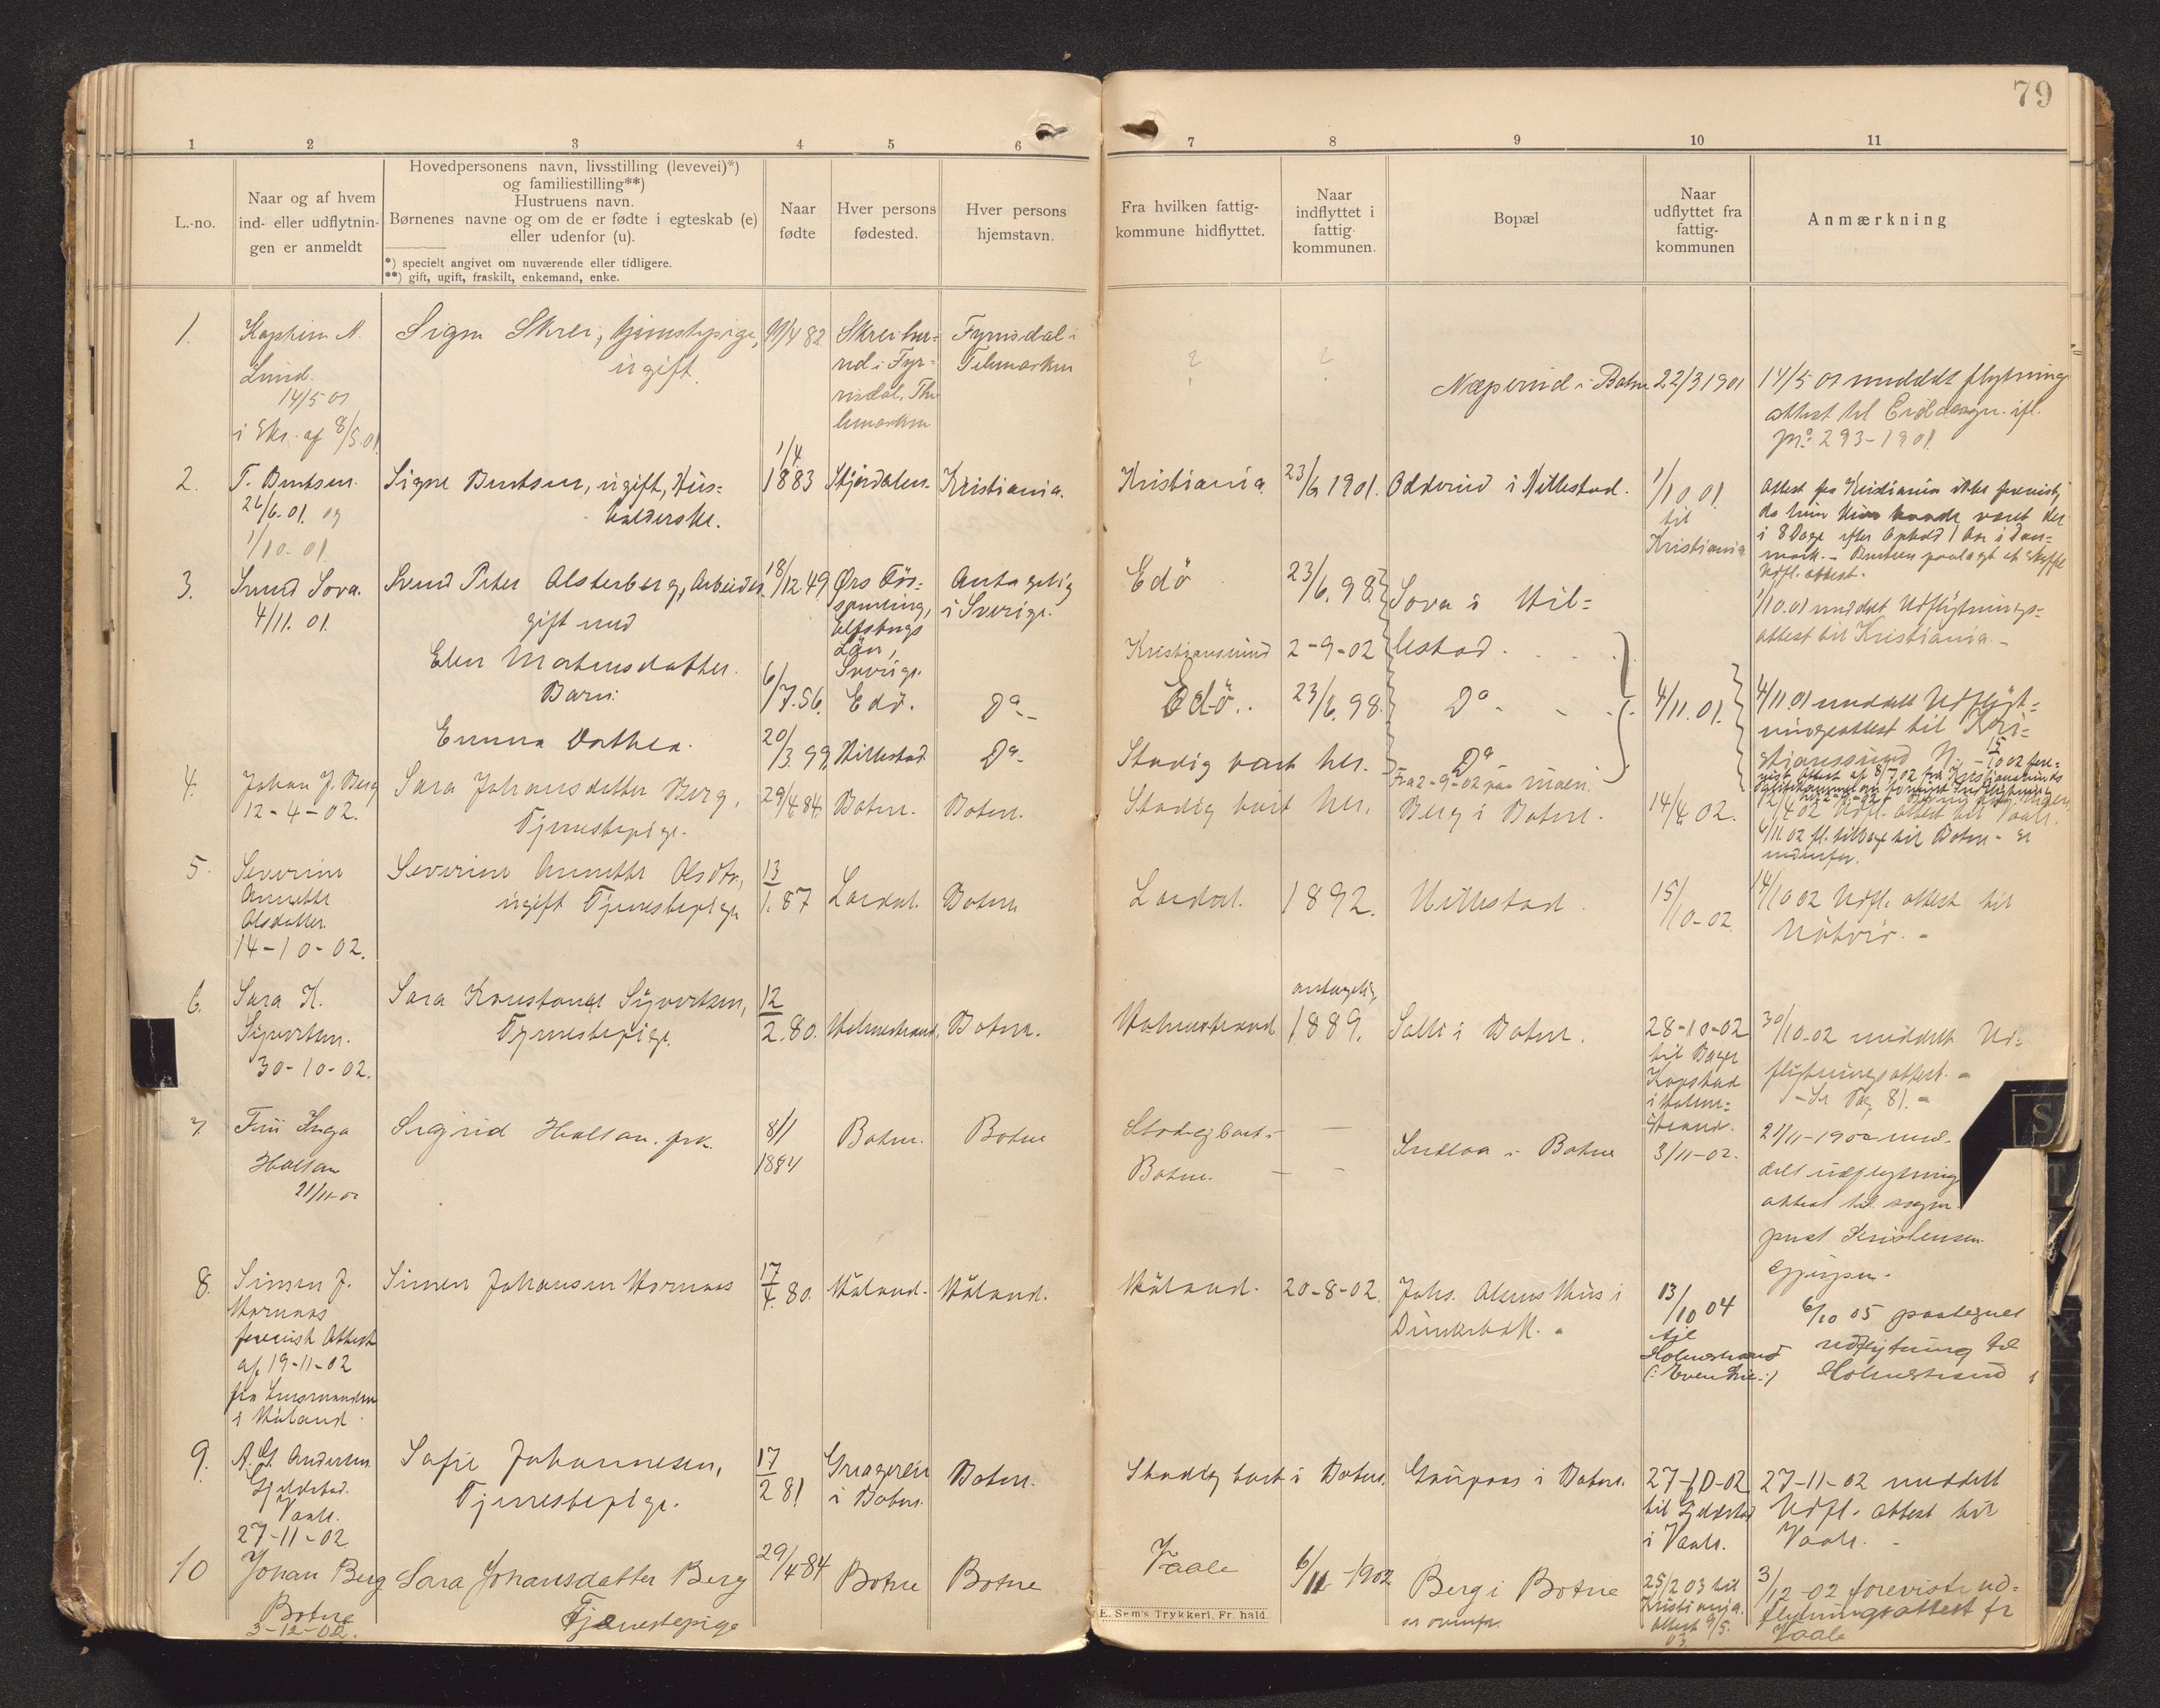 79
1 2 3 4 5 6 7 8 9 10 11
L.-no.
Naar og af hvem
ind- eller udflytnin-
gen er anmeldt
Hovedpersonens navn, livsstilling (levevei)*)
og familiestilling**)
Hustruens navn.
Børnenes navne og om de er fødte i egteskab (e)
eller udenfor (u).
*) specielt angivet om nuværende eller tidligere.
**) gift, ugift, fraskilt, enkemand, enke.
Naar
fødte
Hver persons
fødested.
Hver persons
hjemstavn.
Fra hvilken fattig-
kommune hidflyttet.
Naar
indflyttet i
fattig
kommunen.
Bopæl
Naar
udflyttet fra
fattig-
kommunen
Anmærkning
1.
Lund.
14/5 01
i Skr. af 8/5.01
Signe Skrei, tjenestepige,
ugift.
11/4 82
Fyrrisdal i
Telemarken
?
?
Næperud i Botne
22/3 1901
14/5 01 meddelt flytnings
attest til
293-1901.
2.
T. Berntsen.
26/6.01. og
1/10-01.
Signe Berntsen, ugift, Hus=
holderske.
1/4.
1883
Stjørdalen.
Kristiania.
Kristiania.
23/6 1901.
Odderud i Hillestad.
1/10.01
til
Kristiania
Attest fra Kristiania ikke forevist
da hun
i 8 Dage efter Ophold 1 Aar i Dan=
mark. - Berntsen paalagt at skaffe
Udfl. attest. -
1/10.01 meddelt Udflytnings=
attest til Kristiania. -
3.
Svend Sova.
4/11. 01.
Svend Peter Alsterberg, Arbeider.
gift med
Elen Martinsdatter.
Barn:
Emma Dorthea.
18/12 49
6/7.56.
20/3 99.
Elfsborgs
Län,
Sverige.
Edö.
Hillestad
Antagelig
i Sverige.
Do -
Do -
Edö
Kristiansund
Edö.
Stadig boet her.
23/6. 98.
2-9-02
23/6. 98.
Sova i Hil=
lestad.
Do -
Do
Fra 2-9-02 paa Moen.
4/11.01.
4/11.01 meddelt Udflyt=
ningsattest til Kri=
stianssund N. -
4.
Johan J. Berg
12-4-02.
Sara Johansdatter Berg,
Tjenestepige.
29/4 84.
Botne.
Botne.
Stadig boet her.
Berg i Botne.
14/4 02.
12/4 02 Udfl. attest til Vaale.
6/11.02 fl. tilbage til Botne - se
nedenfor.
5.
Severine
Annette
Olsdatter.
14-10-02.
Severine Annette Olsdtr.,
ugift Tjenestepige
13/1. 87
Lardal.
Botne
Lardal.
1892.
Hillestad.
15/10-02
14/10 02 Udfl. attest til
Nötterö. -
6.
Sara K.
Sivertsen.
30-10-02.
Sara Konstance Sivertsen,
Tjenestepige.
12/2. 80.
Holmestrand.
Botne.
Holmestrand
antagelig
1889.
Solli i Botne.
28-10-02
til Bager
Kopstad
i Holme=
strand.
30/10-02 meddelt Ud=
flytningsattest. -
- Se Pag 81. -
7.
Frü Inga
Holtan
21/11-02
Sigrid Holtan. frk.
8/1
1884
Botne.
Botne
Stadig boet i
Botne.
Sudloa i Botne
3/11-02.
21/11-1902 med=
delt udflytnings
attest til sogne
prest Kristensen
Gjerpen.
8.
Simen J.
Hornaas
forevist Attest
af 19-11-02
fra Lensmanden
i Höland.
Simen Johansen Hornaas
17/4. 80.
Höland.
Höland.
Höland.
20-8-02.
Johs. Olsens Hus i
Dunkebakk. -
13/10 04
til
Holmestrand
6/10 05 paategnet
udflytning til
Holmestrand
9.
A. G. Andersen
Gjelstad.
Vaale.
27-11-02
Sofie Johannesen,
Tjenestepige.
17/2 81
i Botne.
Botne.
Stadig boet i Botne.
Graapaas i Botne.
27-10-02
til Gjelstad
i Vaale.
27-11-02 meddelt
Udfl. attest til
Vaale. -
10
Johan Berg
Botne
3-12-02.
Sara Johansdatter Berg
Tjenestepige
29/4-84
Botne
Botne
Vaale
6/11-1902
Berg i Botne
se ovenfr.
25/2 03 til
Kristiania.
attest 9/5.
03.
3/12-02 foreviste ud=
flytningsattest fr
Vaale
E. Sem's Trykkeri, Fr.hald.
S
T
X
Y
Z